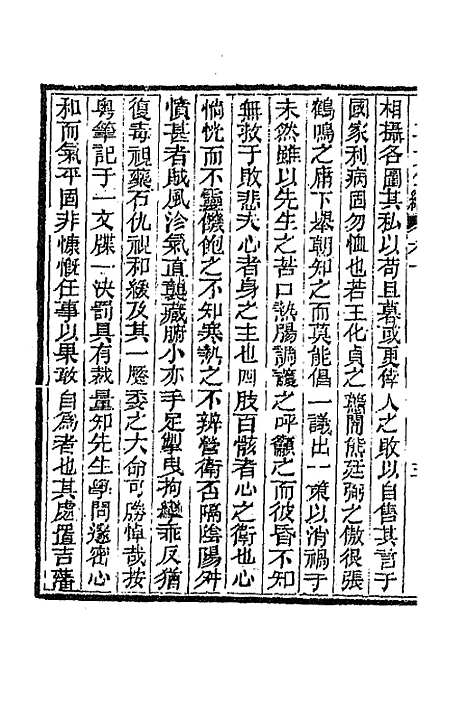 相攝各圖其私以苟且慕或更倖人之敗以自售其言于
國家利病固勿恤也若王化貞之闒熊廷弼之傲很張
鶴鳴之庸下舉朝知之而莫能倡一議出一策以消禍于
未然雖以先生之苦口熱腸調護之呼籲之而彼昏不知
無救于敗悲夫心者身之主也四肢百骸者心之衛也心
惝恍而不靈饑飽之不知寒熱之不辨營衛否隔陰陽舛
憤甚者賊風沴氣直襲藏腑小亦手足掣曳拘攣乖反猶
復毒視藥石仇視和緩及其一壓委之大命可勝悼哉按
粵筆記于一文牒一決罰具有裁量知先生學問邃密心
和而氣平固非慷慨任事以果敢自為者也其處置吉藩